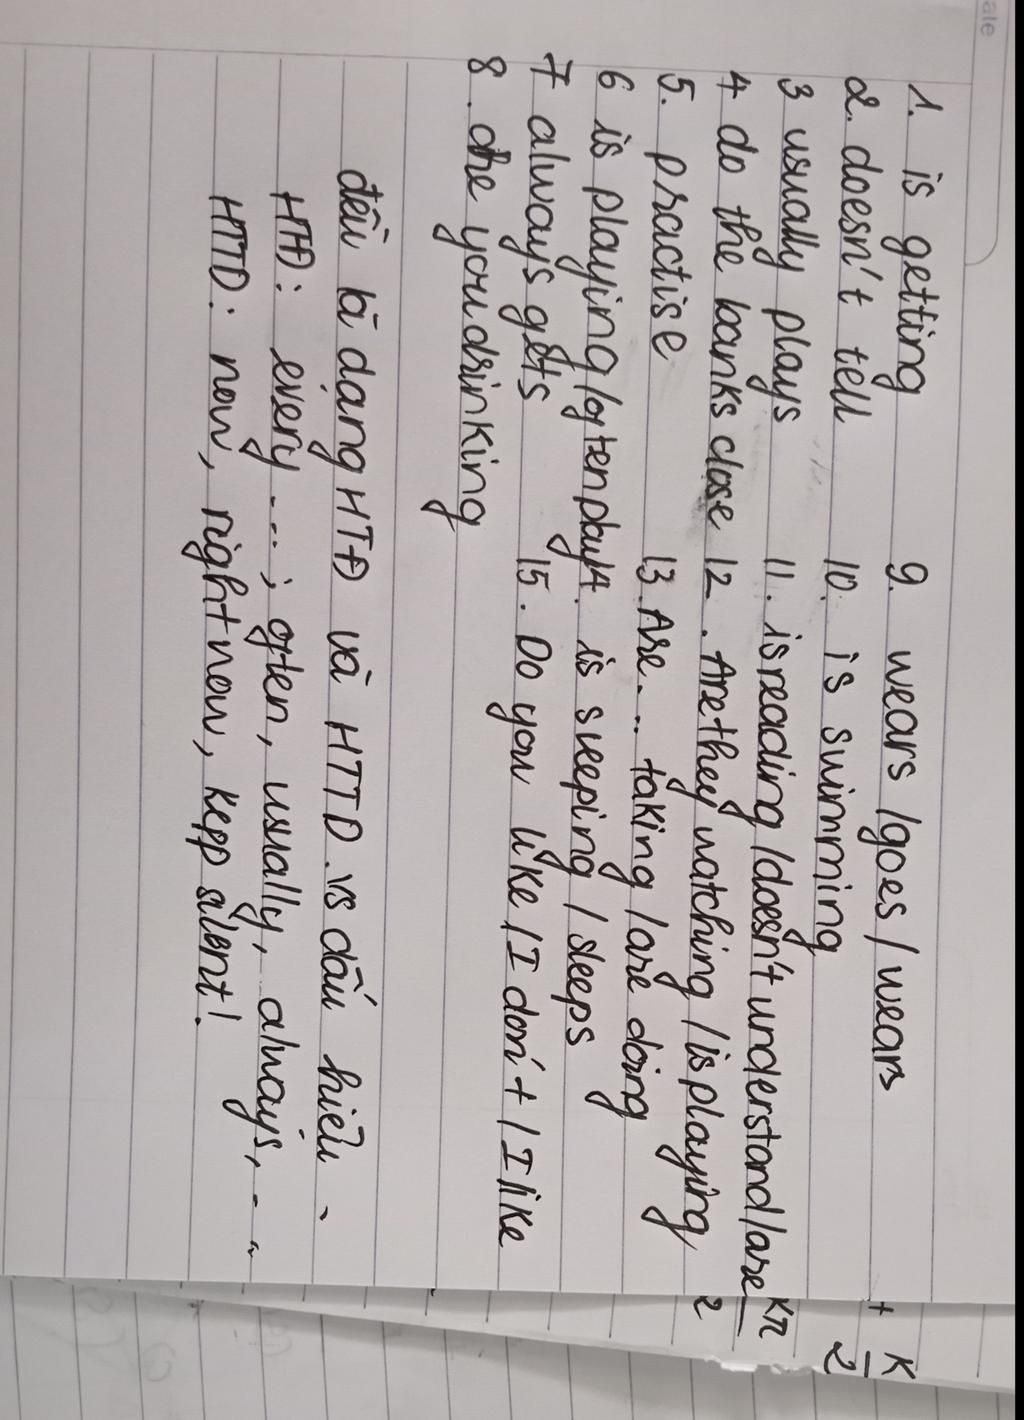 ate
1. is getting
2. doesn't tell
3 usually plays
4 do the banks close
5. practise
6 is playing / often plays
7 always gets
8. are you drinking
9. wears / goes / wears
10. is swimming
11. is reading / doesn't understand / are
12. Are they watching / is playing
13. Are... taking / are doing
14. is sleeping / sleeps
15. Do you like / I don't / I like
đều là dạng HTĐ và HTTD. vs dấu hiệu
HTĐ: every ...; often, usually, always, ...
HTTD: now, right now, kepp silent!
+ K
2
Kπ
2